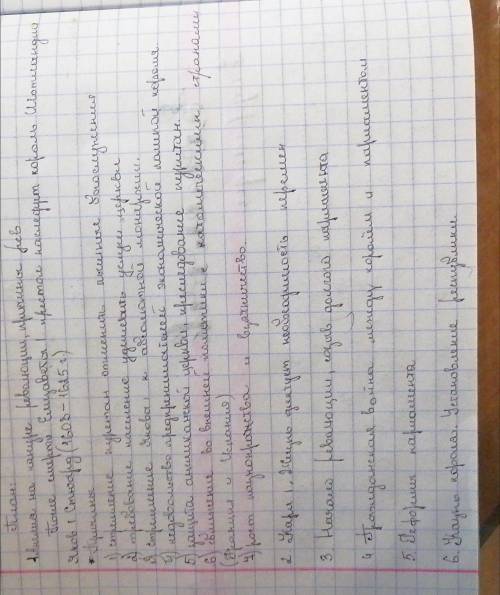 План:
1. Англия на кануне революции, причины рев
После смерти Елизаветы I престол наследует король Шотландии
Яков I Стюард (1603-1625 г)
* Причины
1) стремление пуритан отменить пышные богослужения
2) требование населения удешевить услуги церкви
3) стремление Якова I к абсолютной монархии.
4) недовольство предпринимателей экономической политикой короля
5) защита англиканской церкви, преследование пуритан.
6) сближение во внешней политики с католическими странами
(Франция и Испания)
7) рост казнокрадства и взяточничества
2 Карл I. Жизнь диктует необходимость перемен
3 Начало революции созыв долгого парламента
4 Гражданская война между королём и парламентом
5 Реформы парламента
6. Казнь короля. Установление республики